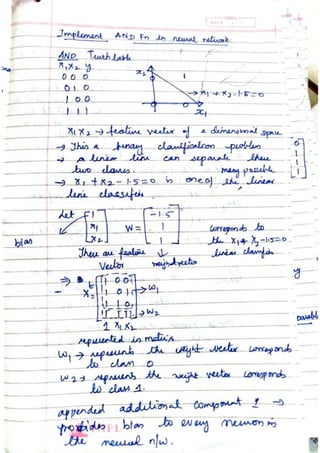 Implement AND Fn in neural network
AND Truth table
x1 x2 y
0 0 0
0 1 0
1 0 0
1 1 1
x2
1
→ x1 + x2 - 1.5 = 0
x1
x1 x2 → feature vector of 2 dimensional space
→ This is a binary classification problem
→ a linear line can separate these
two classes. many possible
→ x1 + x2 - 1.5 = 0 is one of the linear
line classifier
0
1
1
1
let [1 x1 x2] W = [-1.5 1 1] corresponds to
bias the x1 + x2 - 1.5 = 0
These are feature ↓ linear classifier
Vector weight vector
y
X =
1 0 0
1 0 1 → W1
1 1 0
1 1 1 → W2
1 x1 x2
represented in matrix
W1 → represents the weight vector corresponds
to class 0
W2 → represents the weight vector corresponds
to class 1.
appended additional component 1 →
provides bias to every neuron in
the neural n/w.